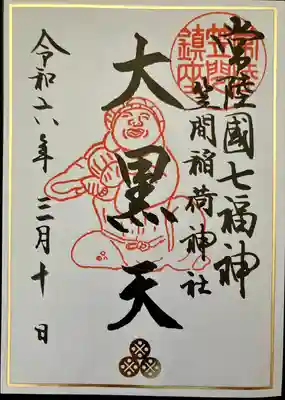 常陸國七福神
笠間稲荷神社
大黒天
令和六年三月十日